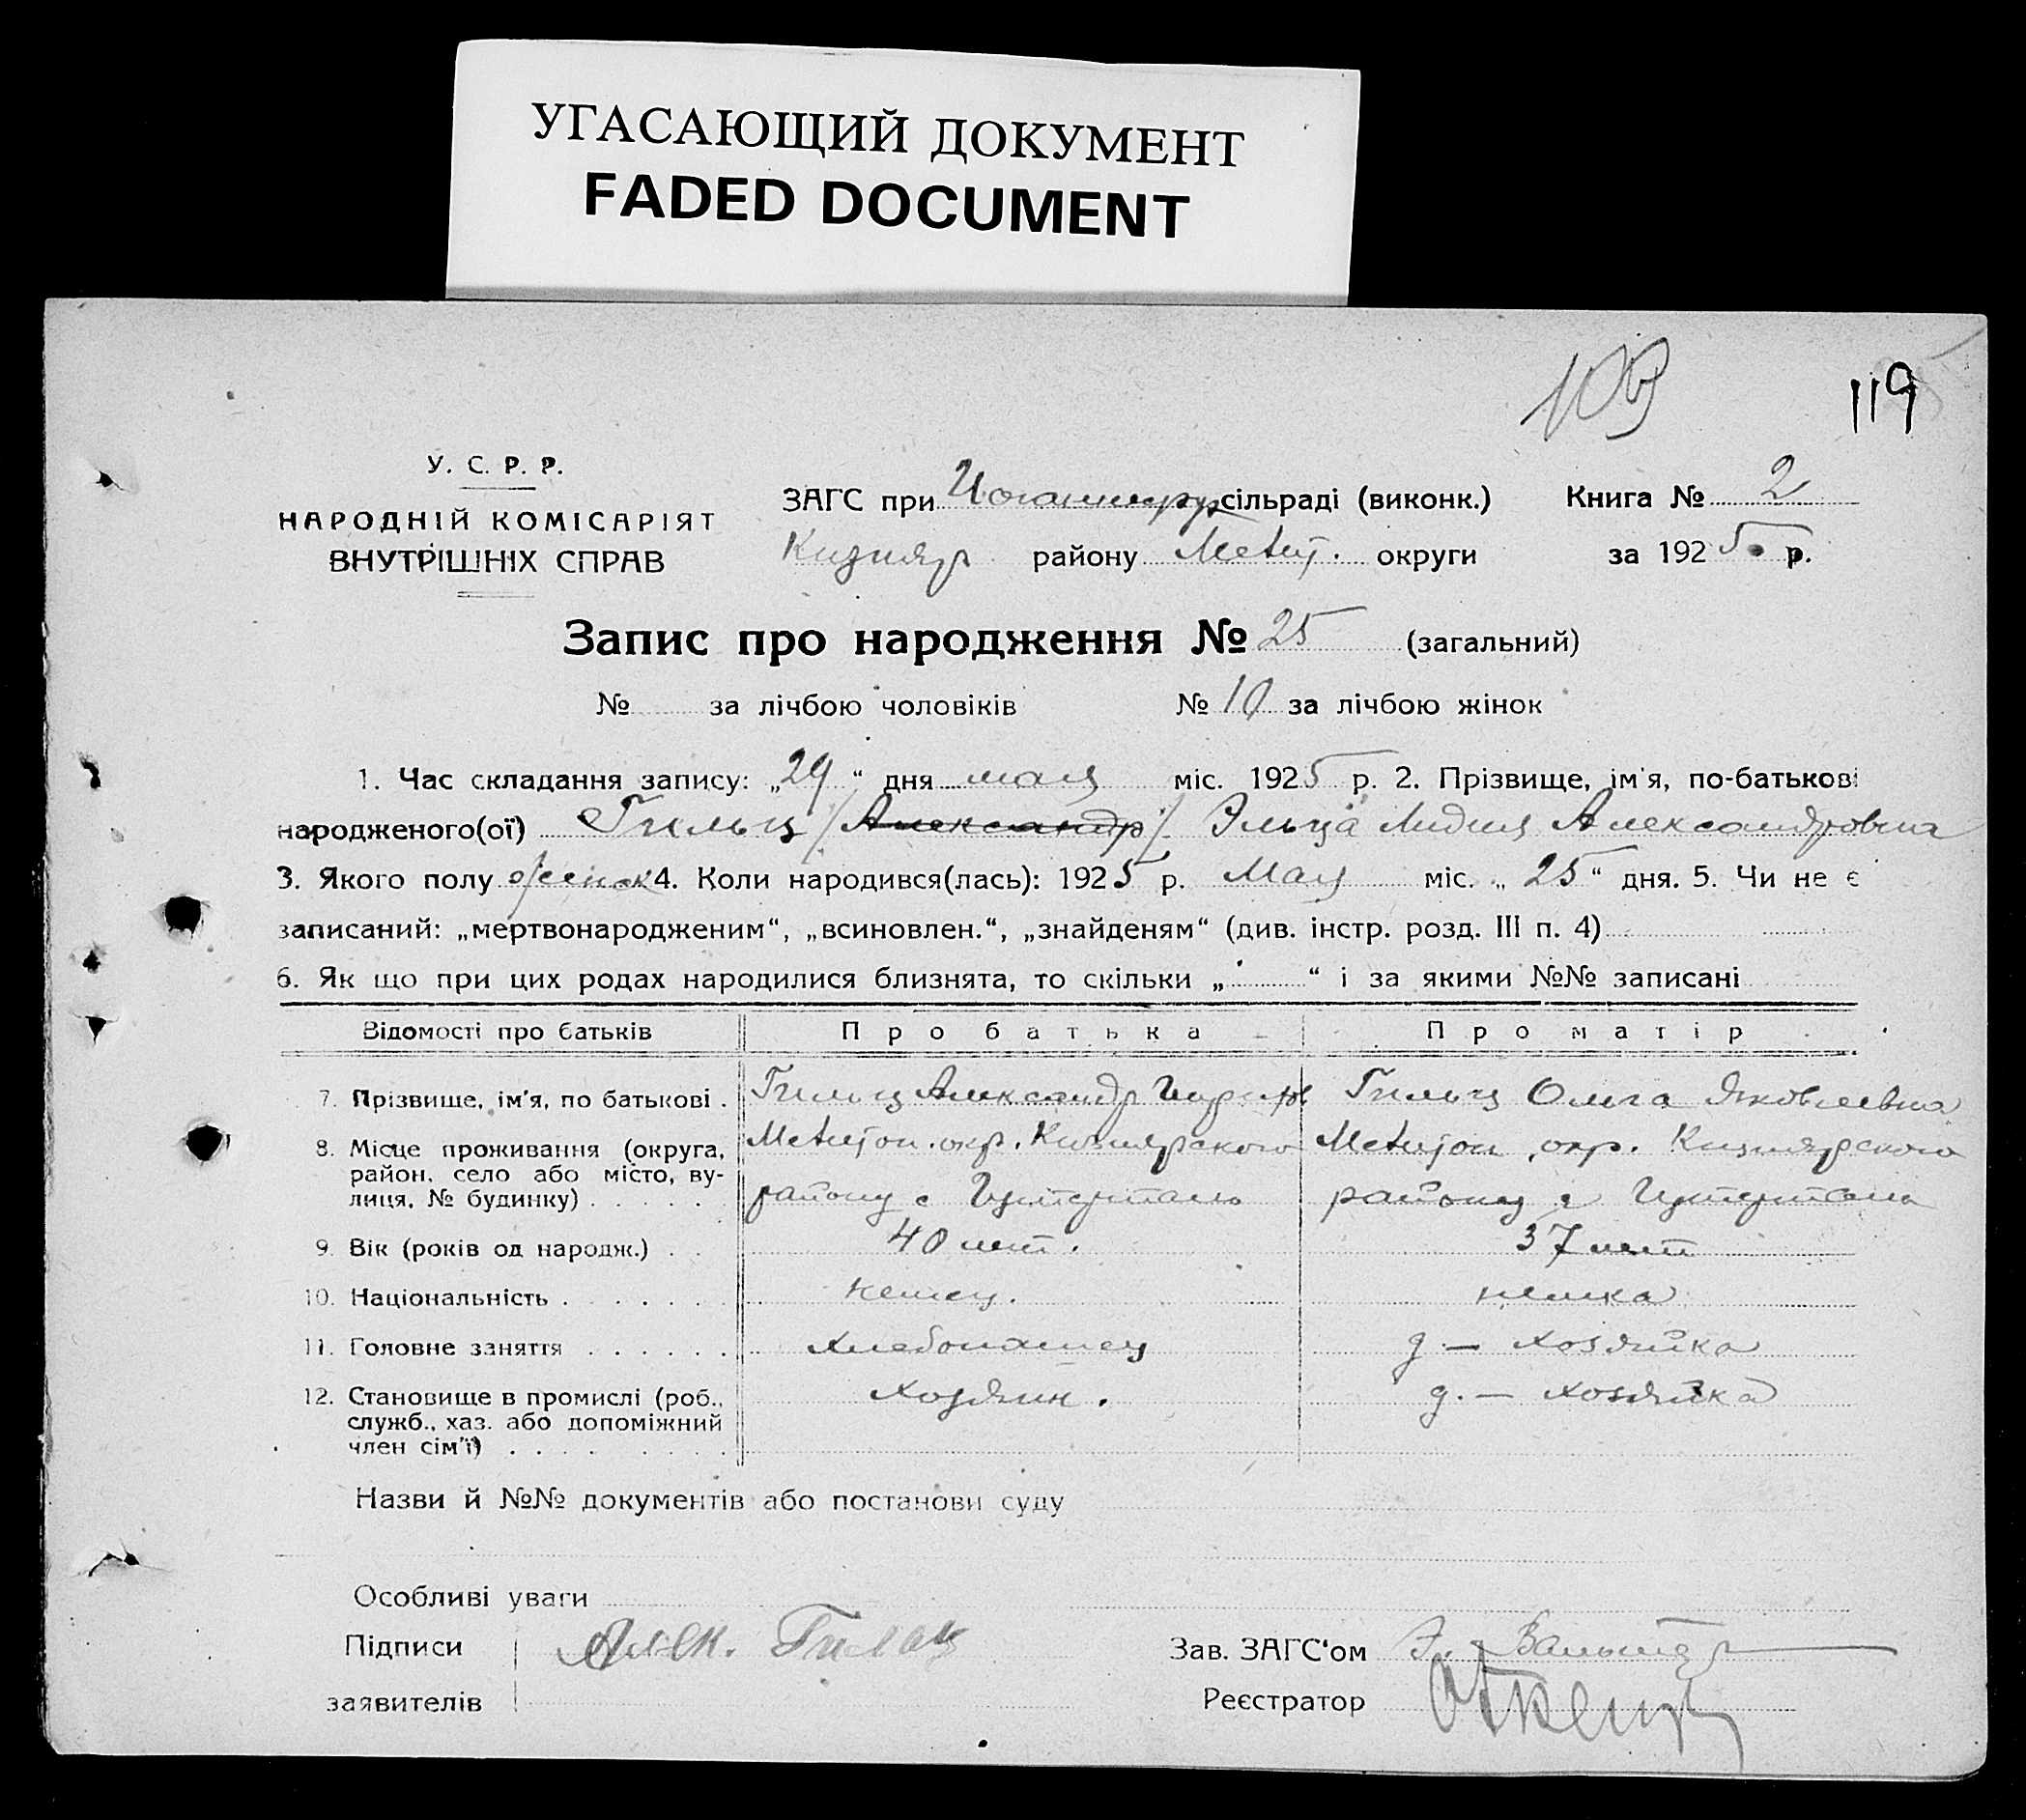 УГАСАЮЩИЙ ДОКУМЕНТ
FADED DOCUMENT
103
119
У. С. Р. Р.
НАРОДНІЙ КОМІСАРІЯТ
ВНУТРІШНІХ СПРАВ
ЗАГС при сільраді (виконк.) Книга № 2
району округи за 1925 р.
Запис про народження № 25 (загальний)
№ за лічбою чоловіків № 10 за лічбою жінок
1. Час складання запису: „29“ дня мая міс. 1925 р. 2. Прізвище, ім'я, по-батькові
народженого(ої) Гильц /Александр/ Эльза Лидия Александровна
3. Якого полу женск 4. Коли народився(лась): 1925 р. Мая міс. „25“ дня. 5. Чи не є
записаний: „мертвонародженим“, „всиновлен.“, „знайденям“ (див. інстр. розд. III п. 4)
6. Як що при цих родах народилися близнята, то скільки „ “ і за якими №№ записані
Відомості про батьків Про батька Про матір
7. Прізвище, ім'я, по батькові . Гильц Александр Гильц Ольга Яковлевна
8. Місце проживання (округа, район, село або місто, вулиця, № будинку) . . . . . окр. району с окр. району с
9. Вік (років од народж.) . . 40 лет. 37 лет
10. Національність . . . . . . . немец. немка
11. Головне заняття . . . . . . хлебопашец д — хозяйка
12. Становище в промислі (роб., служб., хаз. або допоміжний член сім'ї) . . . . . . . . хозяин. д. — хозяйка
Назви й №№ документів або постанови суду
Особливі уваги
Підписи Алек. Гильц Зав. ЗАГС'ом Э. Вальтер
заявителів Реєстратор